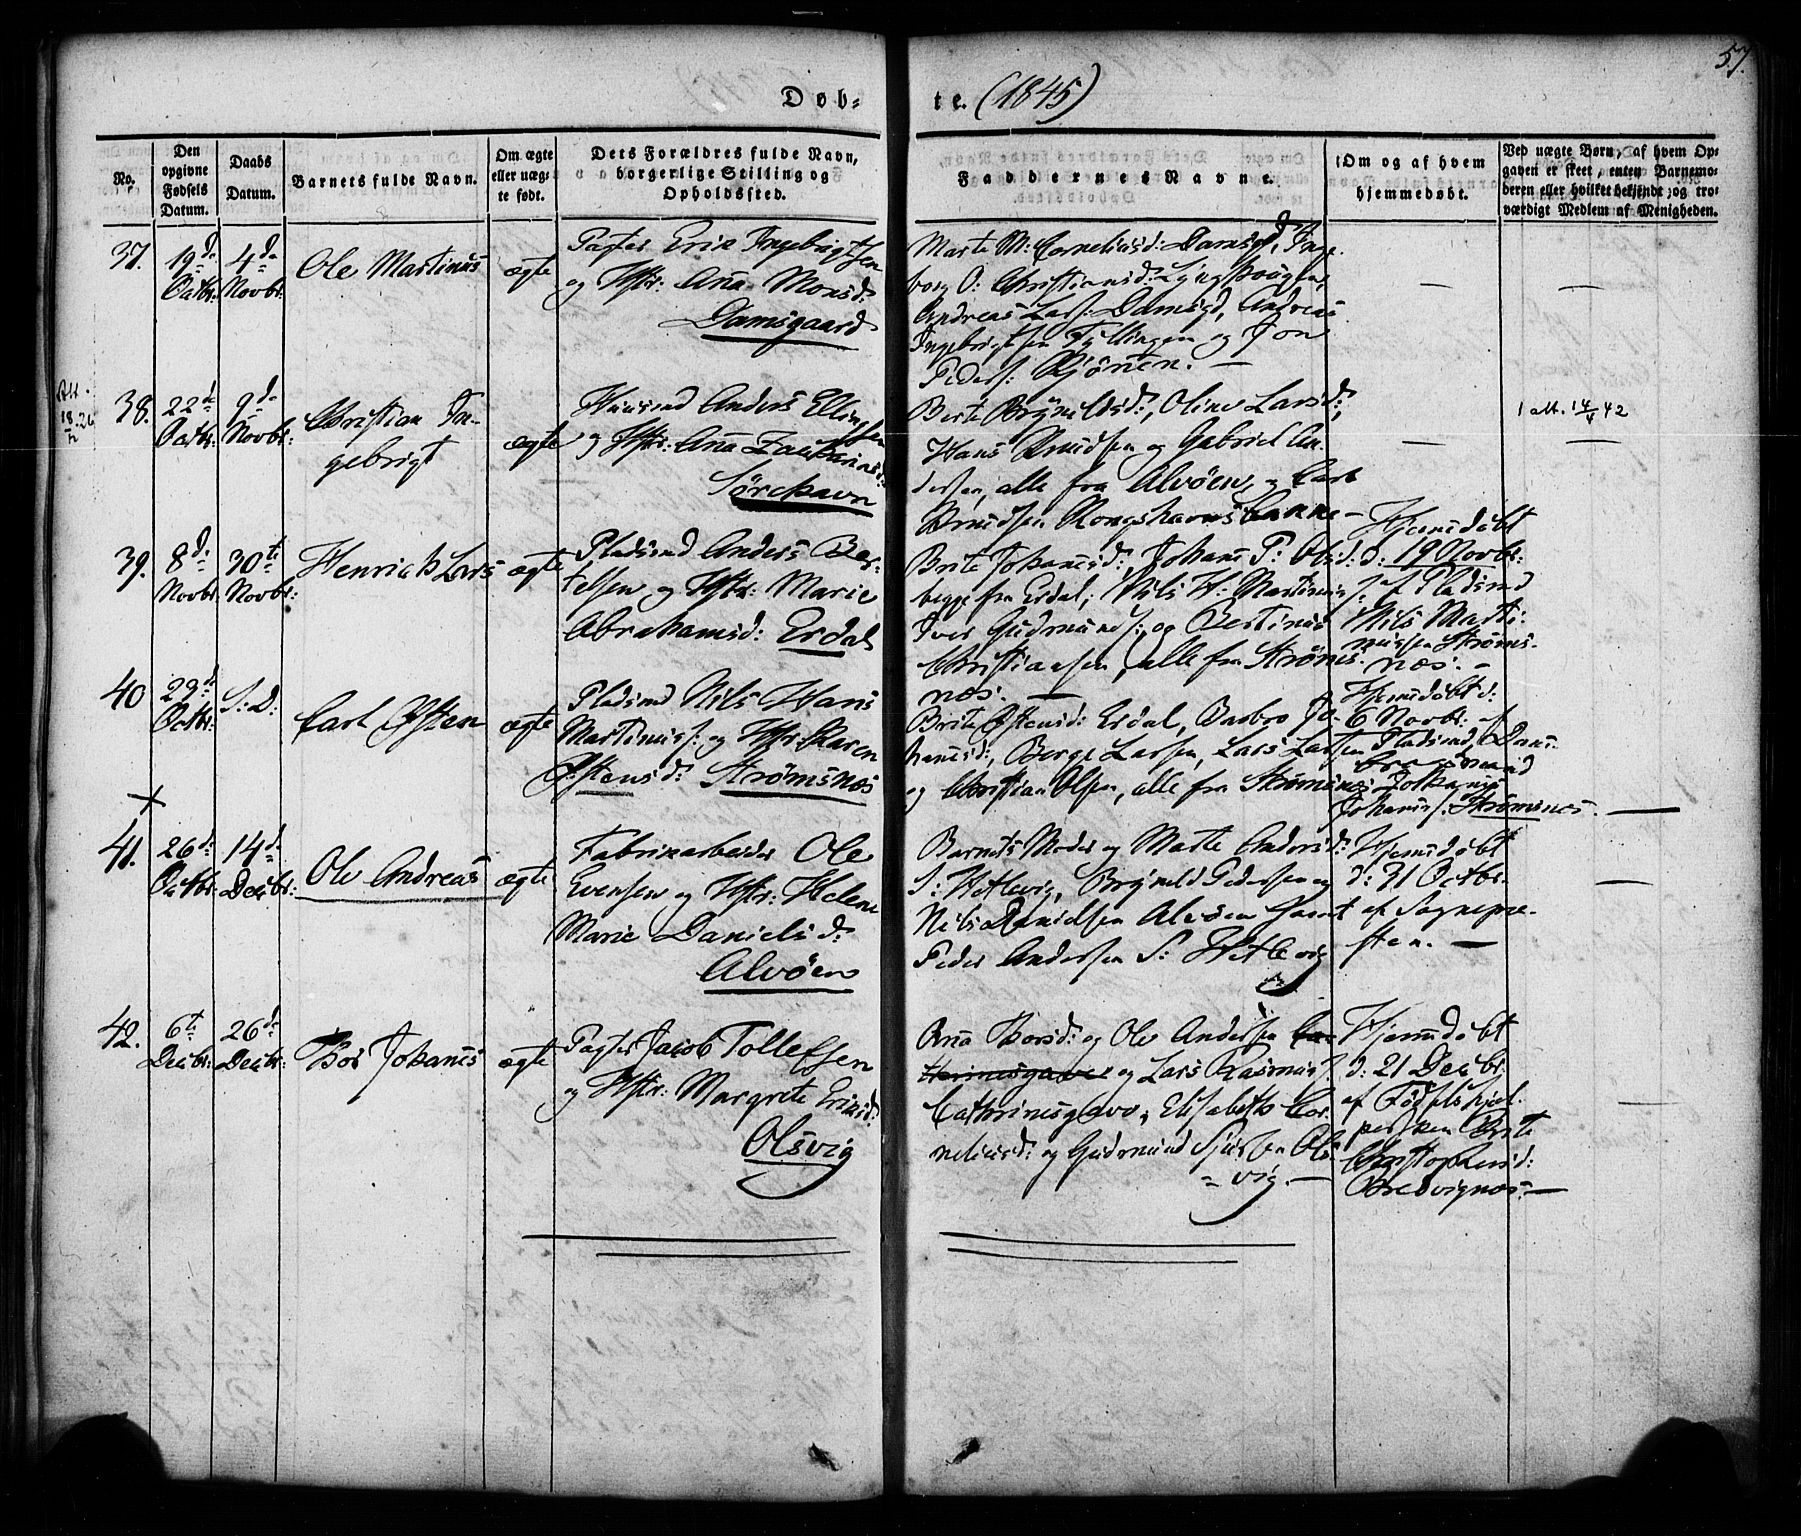 57.
Døb-
te. (1845)
No.
Den opgivne Fødsels Datum.
Daabs Datum.
Barnets fulde Navn.
Om ægte eller uægte født.
Dets Forældres fulde Navn, borgerlige Stilling og Opholdssted.
Faddernes Navne.
Om og af hvem hjemmedøbt.
Ved uægte Børn, af hvem Opgaven er skeet, enten Barnemoderen eller hvilket bekjendt og troværdigt Medlem af Menigheden.
37. 19de Octbr: 4de Novbr:
Ole Martinus
ægte
Pagter Erik Ingebrigtsen
og Hstr: Ana Monsd:
Damsgaard
Marte M: Corneliusd: Damsgd, Inge-
borg O: Christiansd:
Andreas Lars: Damsgd, Andreas
Ingebrigtsen Fyllingen og Jon
Peders: Kjönen. —
38. 22de Octbr: 9de Novbr:
Christian In-
gebrigt
ægte
Huusmd Anders Ellingsen
og Hstr: Ana Zachariasd:
Sörehavn
Berte Brynildsd:, Oline Larsd:,
Hans Knudsen og Gabriel An-
dersen, alle fra Alvöen, og Carl
Knudsen
1 att. 14/4 42
39. 8de Novbr: 30te Novbr:
Henrik Lars
ægte
Pladsmd Anders Ber-
telsen og Hstr: Marie
Abrahamsd: Erdal
Brite Johanisd:, Johane P: Olsd:
begge fra Erdal, Nils H: Martinus:
Iver Gudmunds: og Bertinus
Christiansen, alle fra Ströms-
næs. —
Hjemmedöbt
d: 19 Novbr:
af Pladsmd
Nils Marti-
nussen Ströms-
næs. —
40 29de Octbr: S: D:
Carl Østen
ægte
Pladsmd Nils Hans
Martinus: og Hstr: Karen
Østensd: Strömsnæs
Brite Østensd: Erdal, Barbro Jo-
hanisd:, Berge Larsen, Lars Larsen
og Christian Olsen, alle fra Strömsnæs
Hjemmedöbt d:
6 Novbr: af
Pladsmd, Dane-
brogsmand
Johanis: Strömsnæs. —
41. 26de Octbr: 14de Decbr:
Ole Andreas
ægte
Fabrikarbeider Ole
Evensen og Hstr: Helene
Marie Danielsd:
Alvöen
Barnets Moder og Marte Andersd:
S: Hetlevig, Brynild Pedersen og
Nils Danielsen Alvöen samt
Peder Andersen S: Hetlevig
Hjemmedöbt
d: 31 Octbr:
af Sognepre-
sten. —
42. 6te Decbr: 26de Decbr:
Thor Johanes
ægte
Pagter Jacob Tollefsen
og Hstr: Margrete Eriksd:
Olsvig
Ana Thorsd: og Ole Andersen Ca-
og Lars Rasmus:
Cathrinesgave, Elisabeth Cor-
neliusd: og Gudmund Sjursen Ols-
vig. —
Hjemmedöbt
d: 21 Decbr:
af Födselshjel-
persken Brite
Christophersd:
Bredvignæs. —